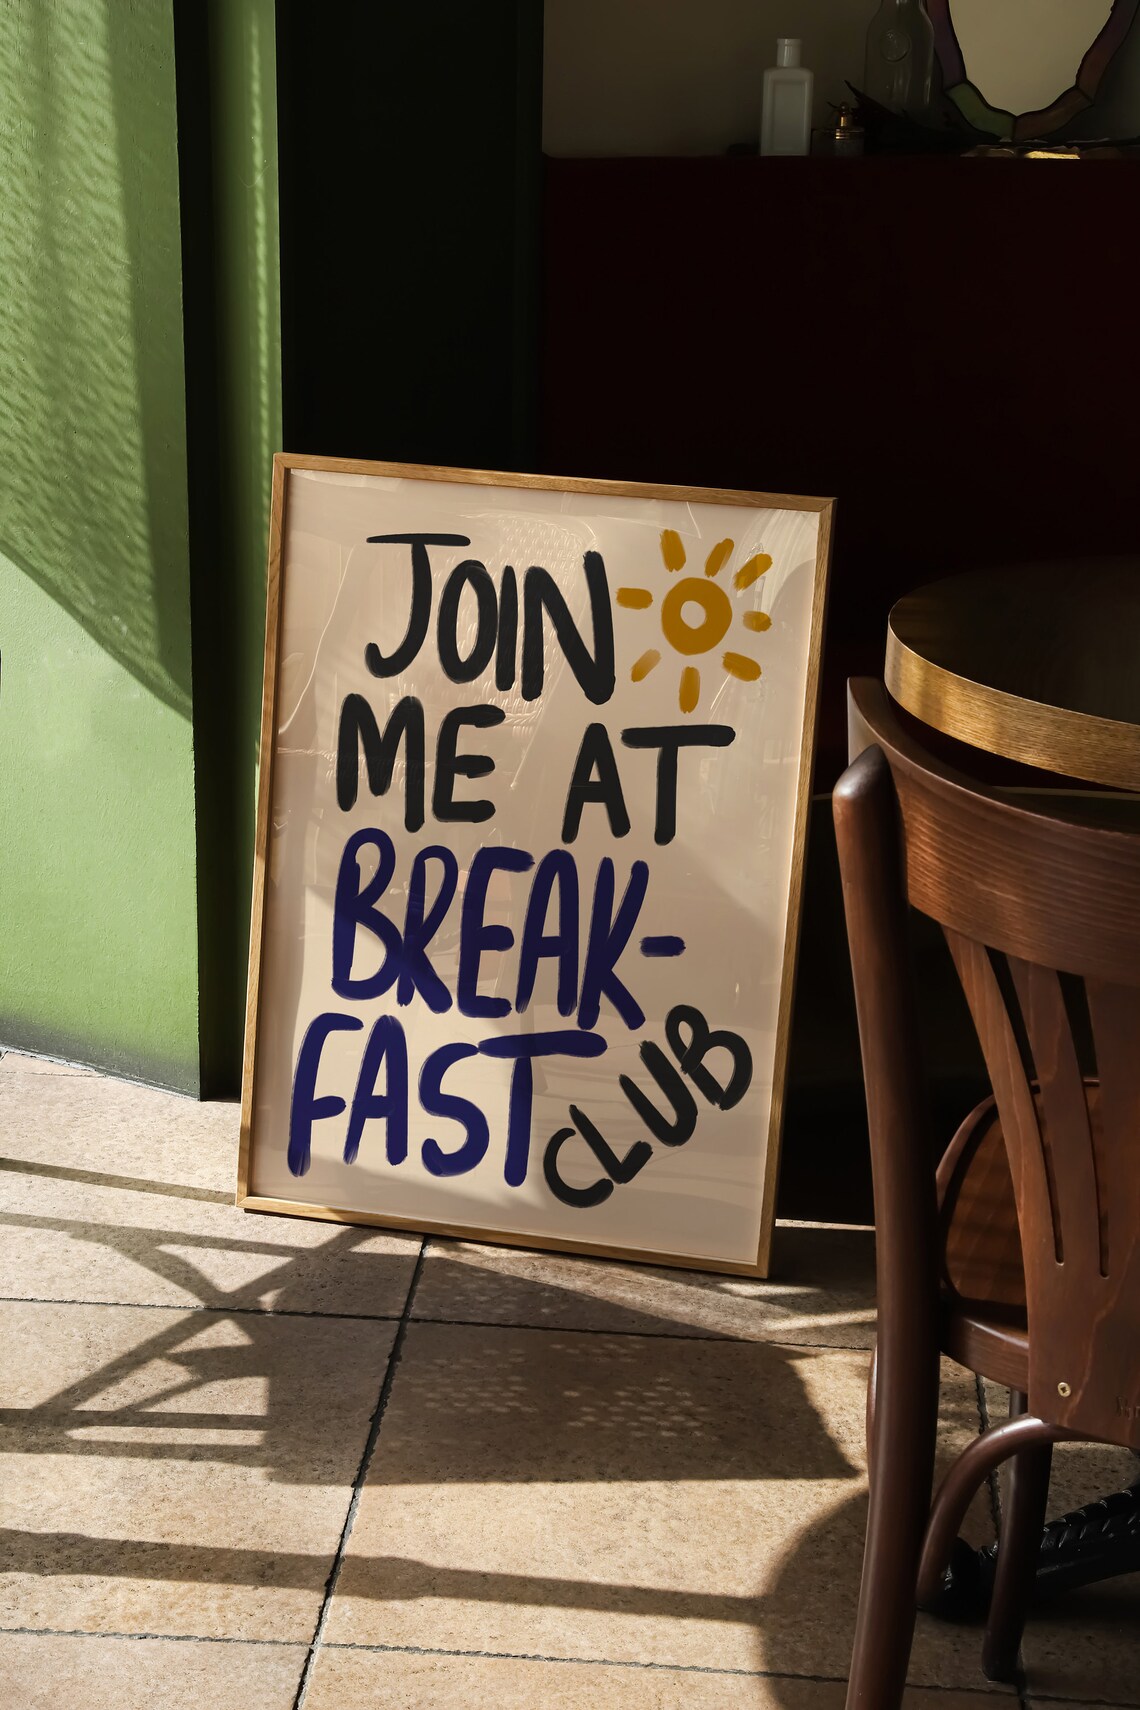 JOIN
ME AT
BREAK-
FAST
CLUB